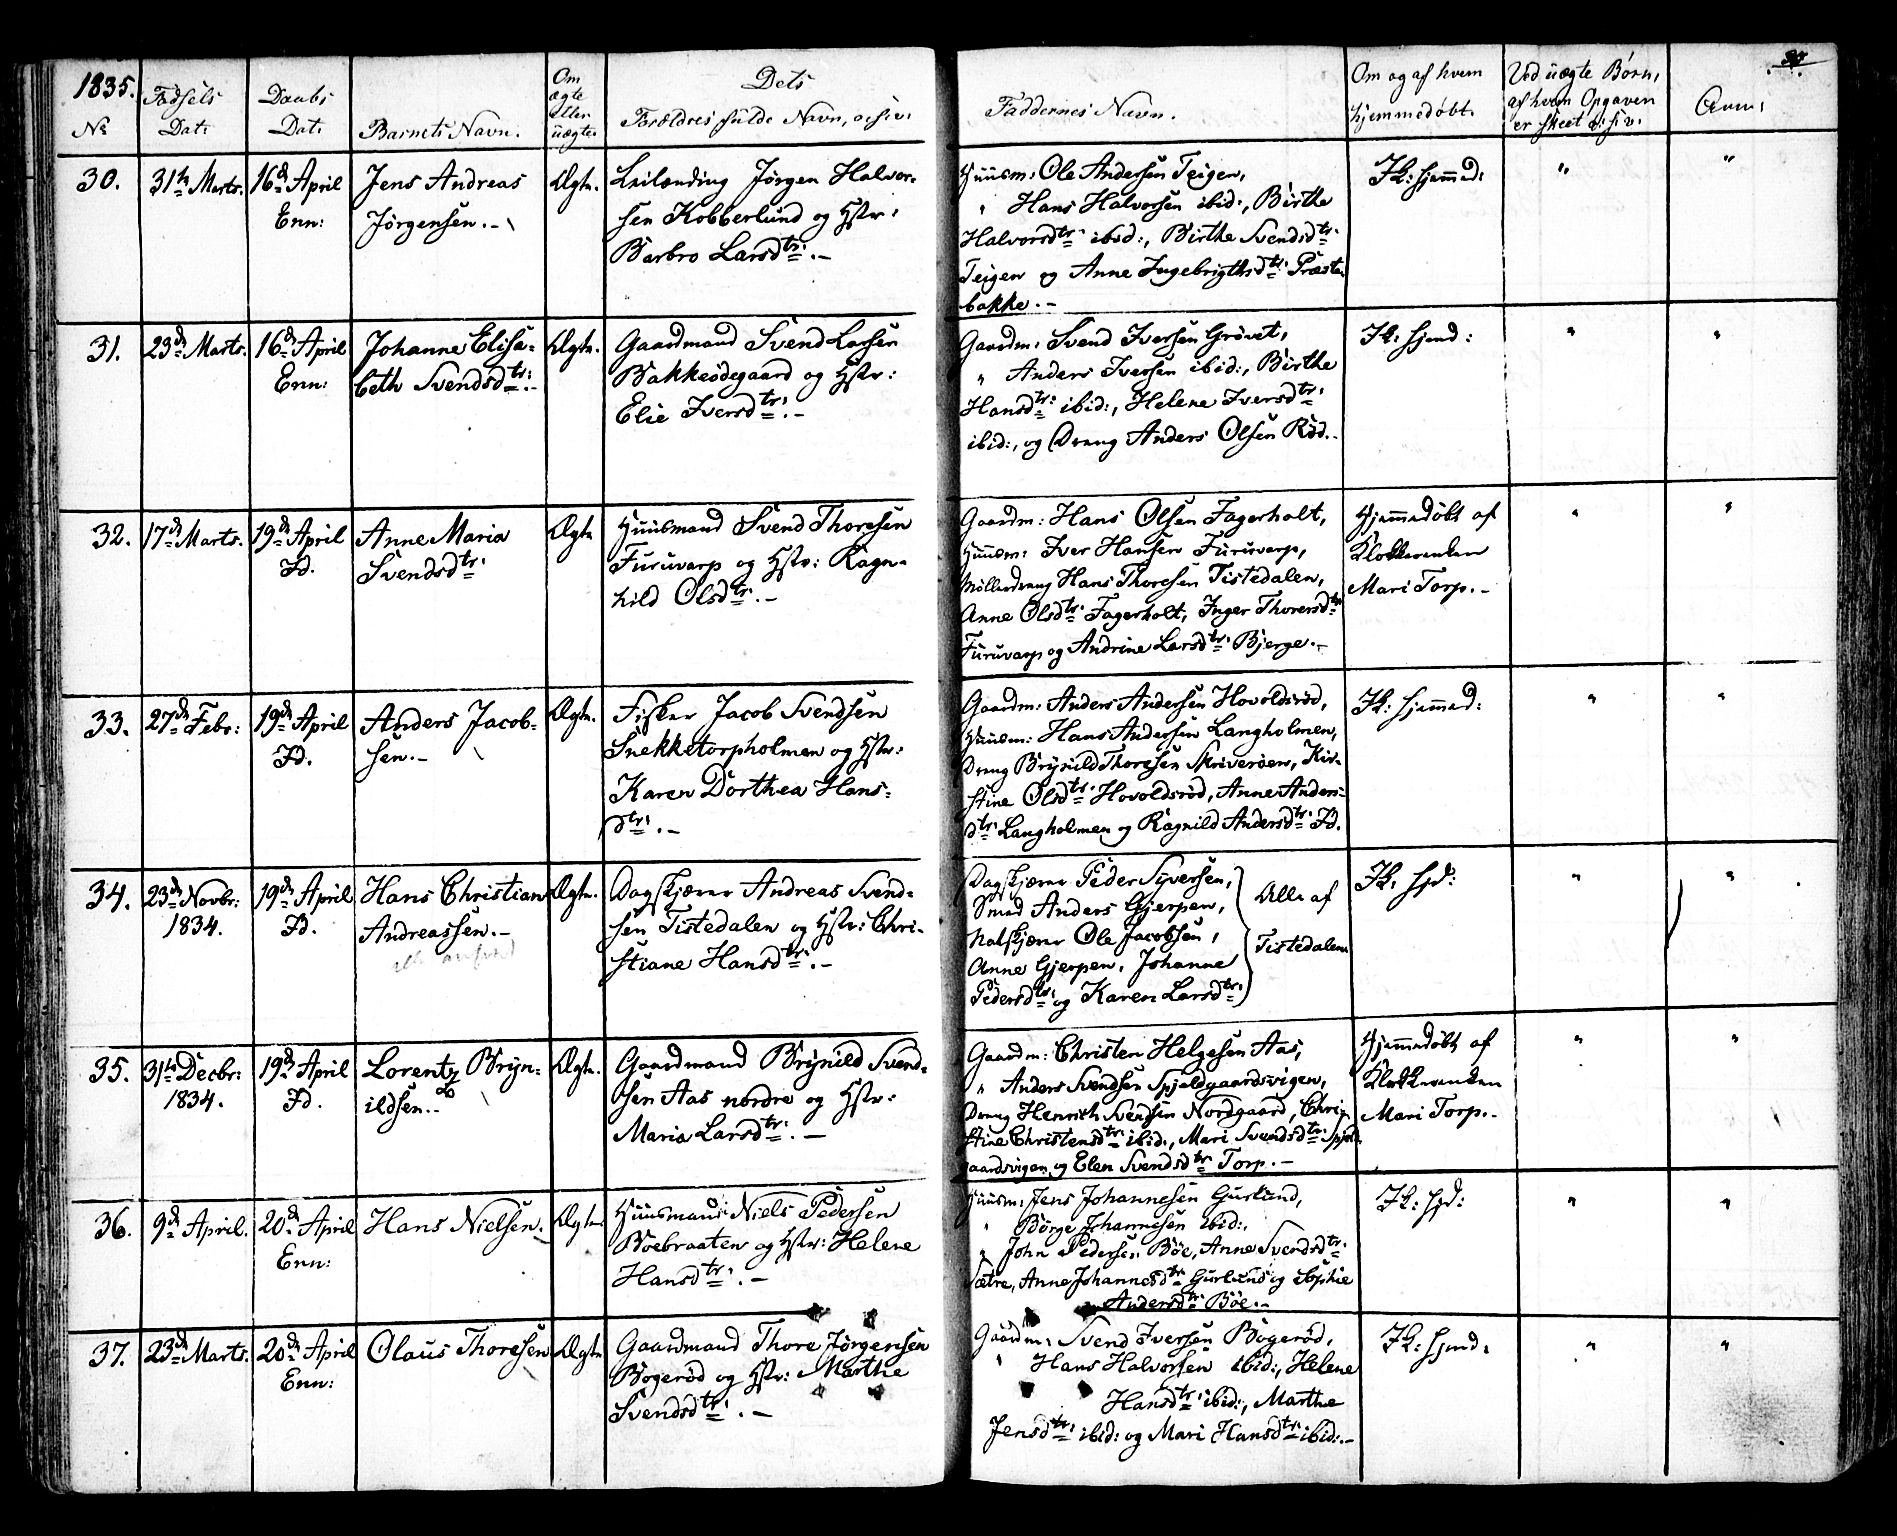 1835.
No
Fødsels
Dat:
Daabs
Dat:
Barnets Navn.
Om
ægte
eller
uægte.
Dets
Forældres fulde Navn, o: s: v:
Faddernes Navn.
Om og af hvem
hjemmedøbt.
Ved uægte Børn,
af hvem Opgaven
er skeet o: s: v:
Anm:
30.
31te Marts.
16de April
Enn:
Jens Andreas
Jørgensen.-
Ægte.
Leilænding Jørgen Halvor-
sen Kobberlund og Hstr:
Barbro Larsdtr:.-
Huusm: Ole Andersen Teigen,
" Hans Halvorsen ibid:, Birthe
Halvorsdtr: ibid:, Birthe Svendsdtr:
Teigen og Anne Ingebrigtsdtr: Præste-
bakke.-
Ik: hjemmed:
"
"
31.
23de Marts.
16de April
Enn:
Johanne Elisa-
beth Svendsdtr:.-
Ægte.
Gaardmand Svend Larsen
Bakkeødegaard og Hstr:
Elie Iversdtr:.-
Gaardm: Svend Iversen Grøvet,
" Anders Iversen ibid:, Birthe
Hansdtr: ibid:, Helene Iversdtr:
ibid:, og Dreng Anders Olsen Rød.-
Ik: hjemd:
"
"
32.
17de Marts.
19de April
Id.
Anne Maria
Svendsdtr:
Ægte
Huusmand Svend Thoresen
Furuvarp og Hstr: Ragn-
hild Olsdtr:.-
Gaardm: Hans Olsen Fagerholt,
Huusm: Iver Hansen Furuvarp,
Møllerdreng Hans Thoresen Tistedalen,
Anne Olsdtr: Fagerholt, Inger Thorersdtr:
Furuvarp og Andrine Larsdtr: Bjerge.-
Hjemmedøbt af
Klokkerenken
Mari Torp.-
"
"
33.
27de Febr:
19de April
Id.
Anders Jacob-
sen.-
Ægte.
Fisker Jacob Svendsen
Snekketorpholmen og Hstr:
Karen Dorthea Hans-
dtr:.-
Gaardm: Anders Andersen Hovoldsrød,
Huusm: Hans Andersen Langholmen,
Dreng Brynild Thoresen Skriverøen, Kir-
stine Olsdtr: Hovoldsrød, Anne Anders-
dtr: Langholmen og Ragnild Andersdtr: Id.
Ik: hjemmed:
"
"
34.
23de Novbr:
1834.
19de April
Id.
Hans Christian
Andreassen.-
Ægte.
Dagskjærer Andreas Svend-
sen Tistedalen og Hstr: Chri-
stiane Hansdtr:.-
Dagskjærer Peder Syversen,
Smed Anders Gjerpen,
Natskjærer Ole Jacobsen,
Anne Gjerpen, Johanne
Pedersdtr: og Karen Larsdtr:
Alle af
Tistedalen.
Ik: hjd:
"
"
35.
31te Decbr:
1834.
19de April
Id.
Lorentz Bryn-
ildsen.-
Ægte.
Gaardmand Brynild Svend-
sen Aas nordre og Hstr:
Maria Larsdtr:.-
Gaardm: Christen Helgesen Aas,
" Anders Svendsen Spjeldgaardsvigen,
Dreng Henrich Svendsen Nordgaard, Chri-
stine Christensdtr: ibid:, Mari Svendsdtr: Spjeld-
gaardsvigen, og Elen Svendsdtr: Torp.-
Hjemmedøbt af
Klokkerenken
Mari Torp.-
"
"
36.
9de April.
20de April
Enn:
Hans Nielsen.
Ægte.
Huusmand Niels Pedersen
Boebraaten og Hstr: Helene
Hansdtr:.-
Huusm: Jens Johannesen Gurlund,
" Børge Johannesen ibid:,
" John Pedersen Bøe, Anne Svendsdtr:
Sætre, Anne Johannesdtr: Gurlund og Sophie
Andersdtr: Bøe.-
Ik: hjd:
"
"
37.
23de Marts.
20de April
Enn:
Olaus Thoresen
Ægte
Gaardmand Thore Jørgensen
Bøgerød og Hstr: Marthe
Svendsdtr:.-
Gaardm: Svend Iversen Bøgerød,
" Hans Halvorsen ibid:, Helene
Hansdtr: ibid:, Marthe
Jensdtr: ibid: og Mari Hansdtr: ibid:.-
Ik: hjemd:
"
"